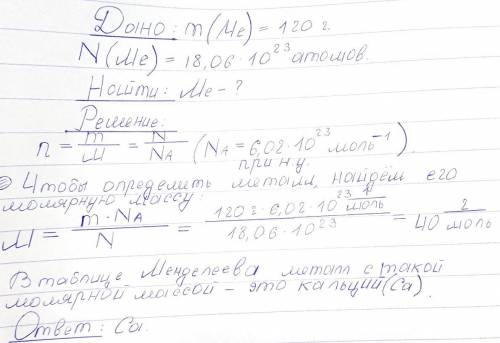 Дано: m(Me) = 120 г.
N(Me) = 18,06·10²³ атомов.
Найти: Me - ?
Решение:
n = m/M = N/NA (NA = 6,02·10²³ моль⁻¹).
при н.у.
Чтобы определить металл, найдём его
молярную массу:
M = m·NA/N = 120 г·6,02·10²³ 1/моль / 18,06·10²³ = 40 г/моль
В таблице Менделеева металл с такой
молярной массой - это кальций (Ca).
Ответ: Ca.